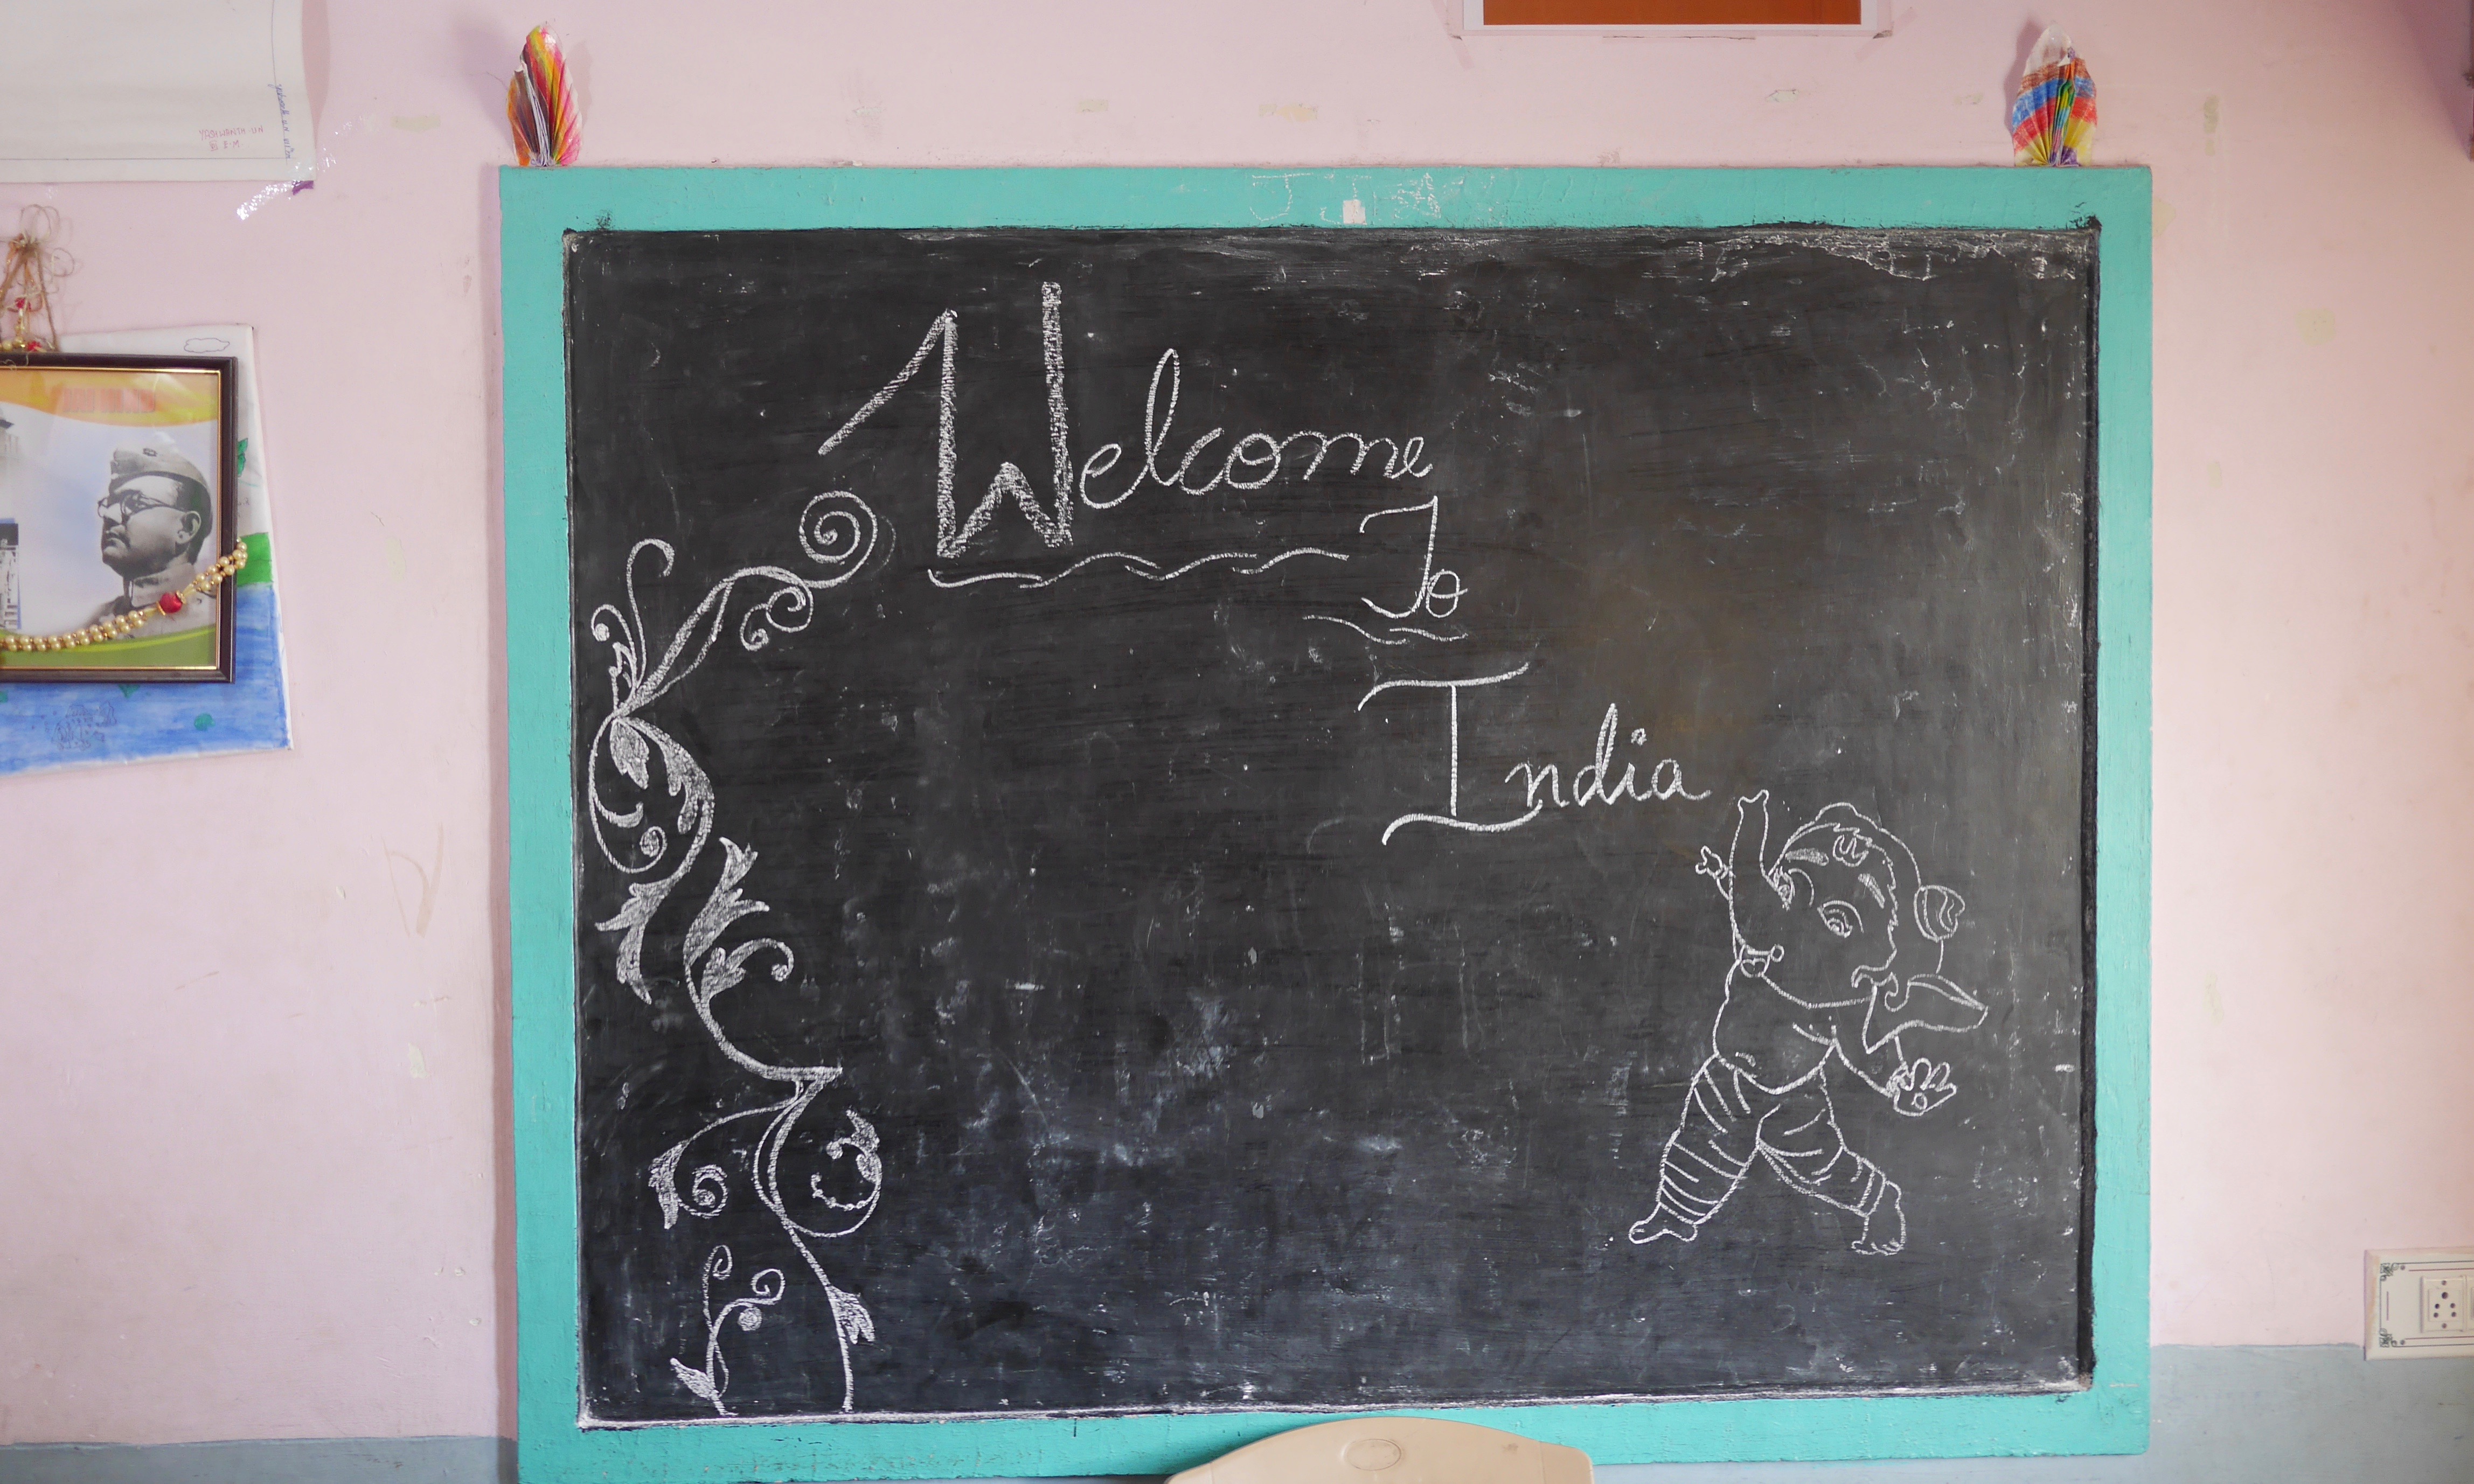 Welcome
To
India